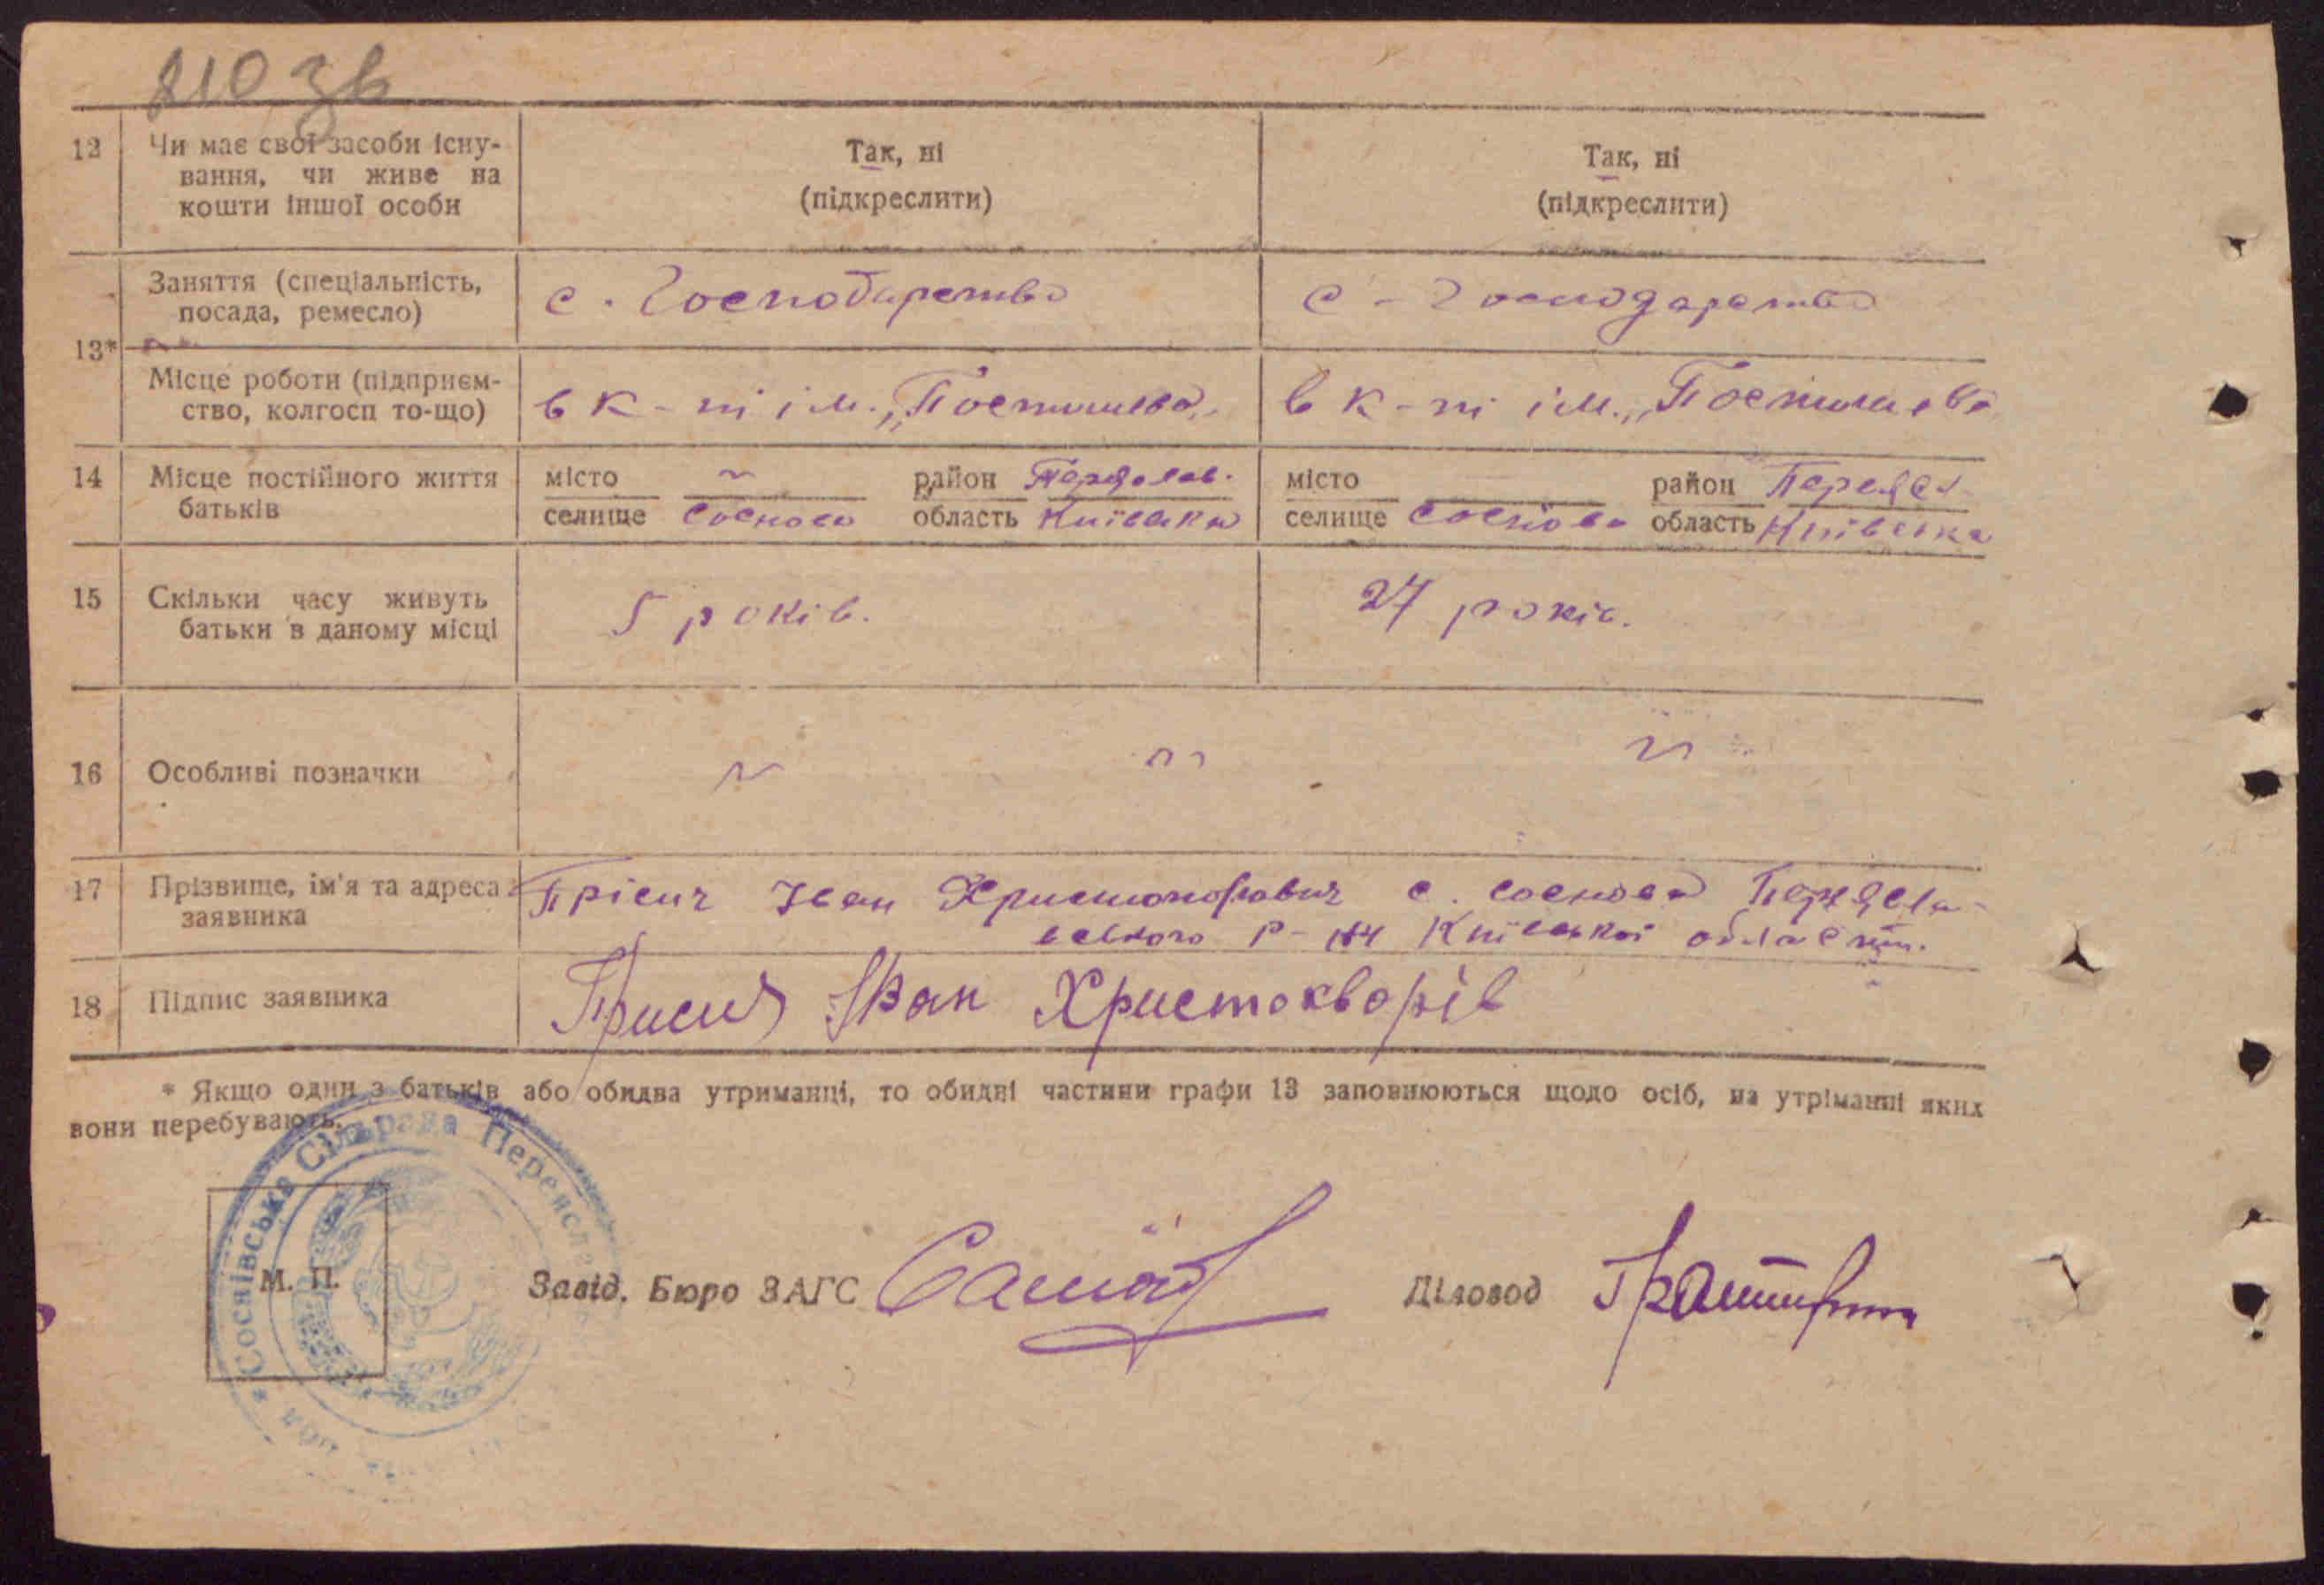 810 зв
12 Чи має свої засоби існу- Так, ні Так, ні
вання, чи живе на (підкреслити) (підкреслити)
кошти іншої особи
Заняття (спеціальність, с. Господарство с - Господарство
посада, ремесло)
13*
Місце роботи (підприєм- в к-пі ім. „Постишева„ в к-пі ім. „Постишева
ство, колгосп то-що)
14 Місце постійного життя місто ~ район Переяслав. місто район Переясл
батьків селище соснова область Київська селище соснова область Київська
15 Скільки часу живуть 5 років. 27 років.
батьки в даному місці
16 Особливі позначки
17 Прізвище, ім'я та адреса Прісич Іван Христофорович с. соснова Переясла-
заявника Київської області.
18 Підпис заявника Присич Іван Христокворів
* Якщо один з батьків або обидва утриманці, то обидві частини графи 13 заповнюються щодо осіб, на утріманні яких
вони перебувають.
* Соснівська Сільрада Переясла
М. П.
Завід. Бюро ЗАГС Діловод